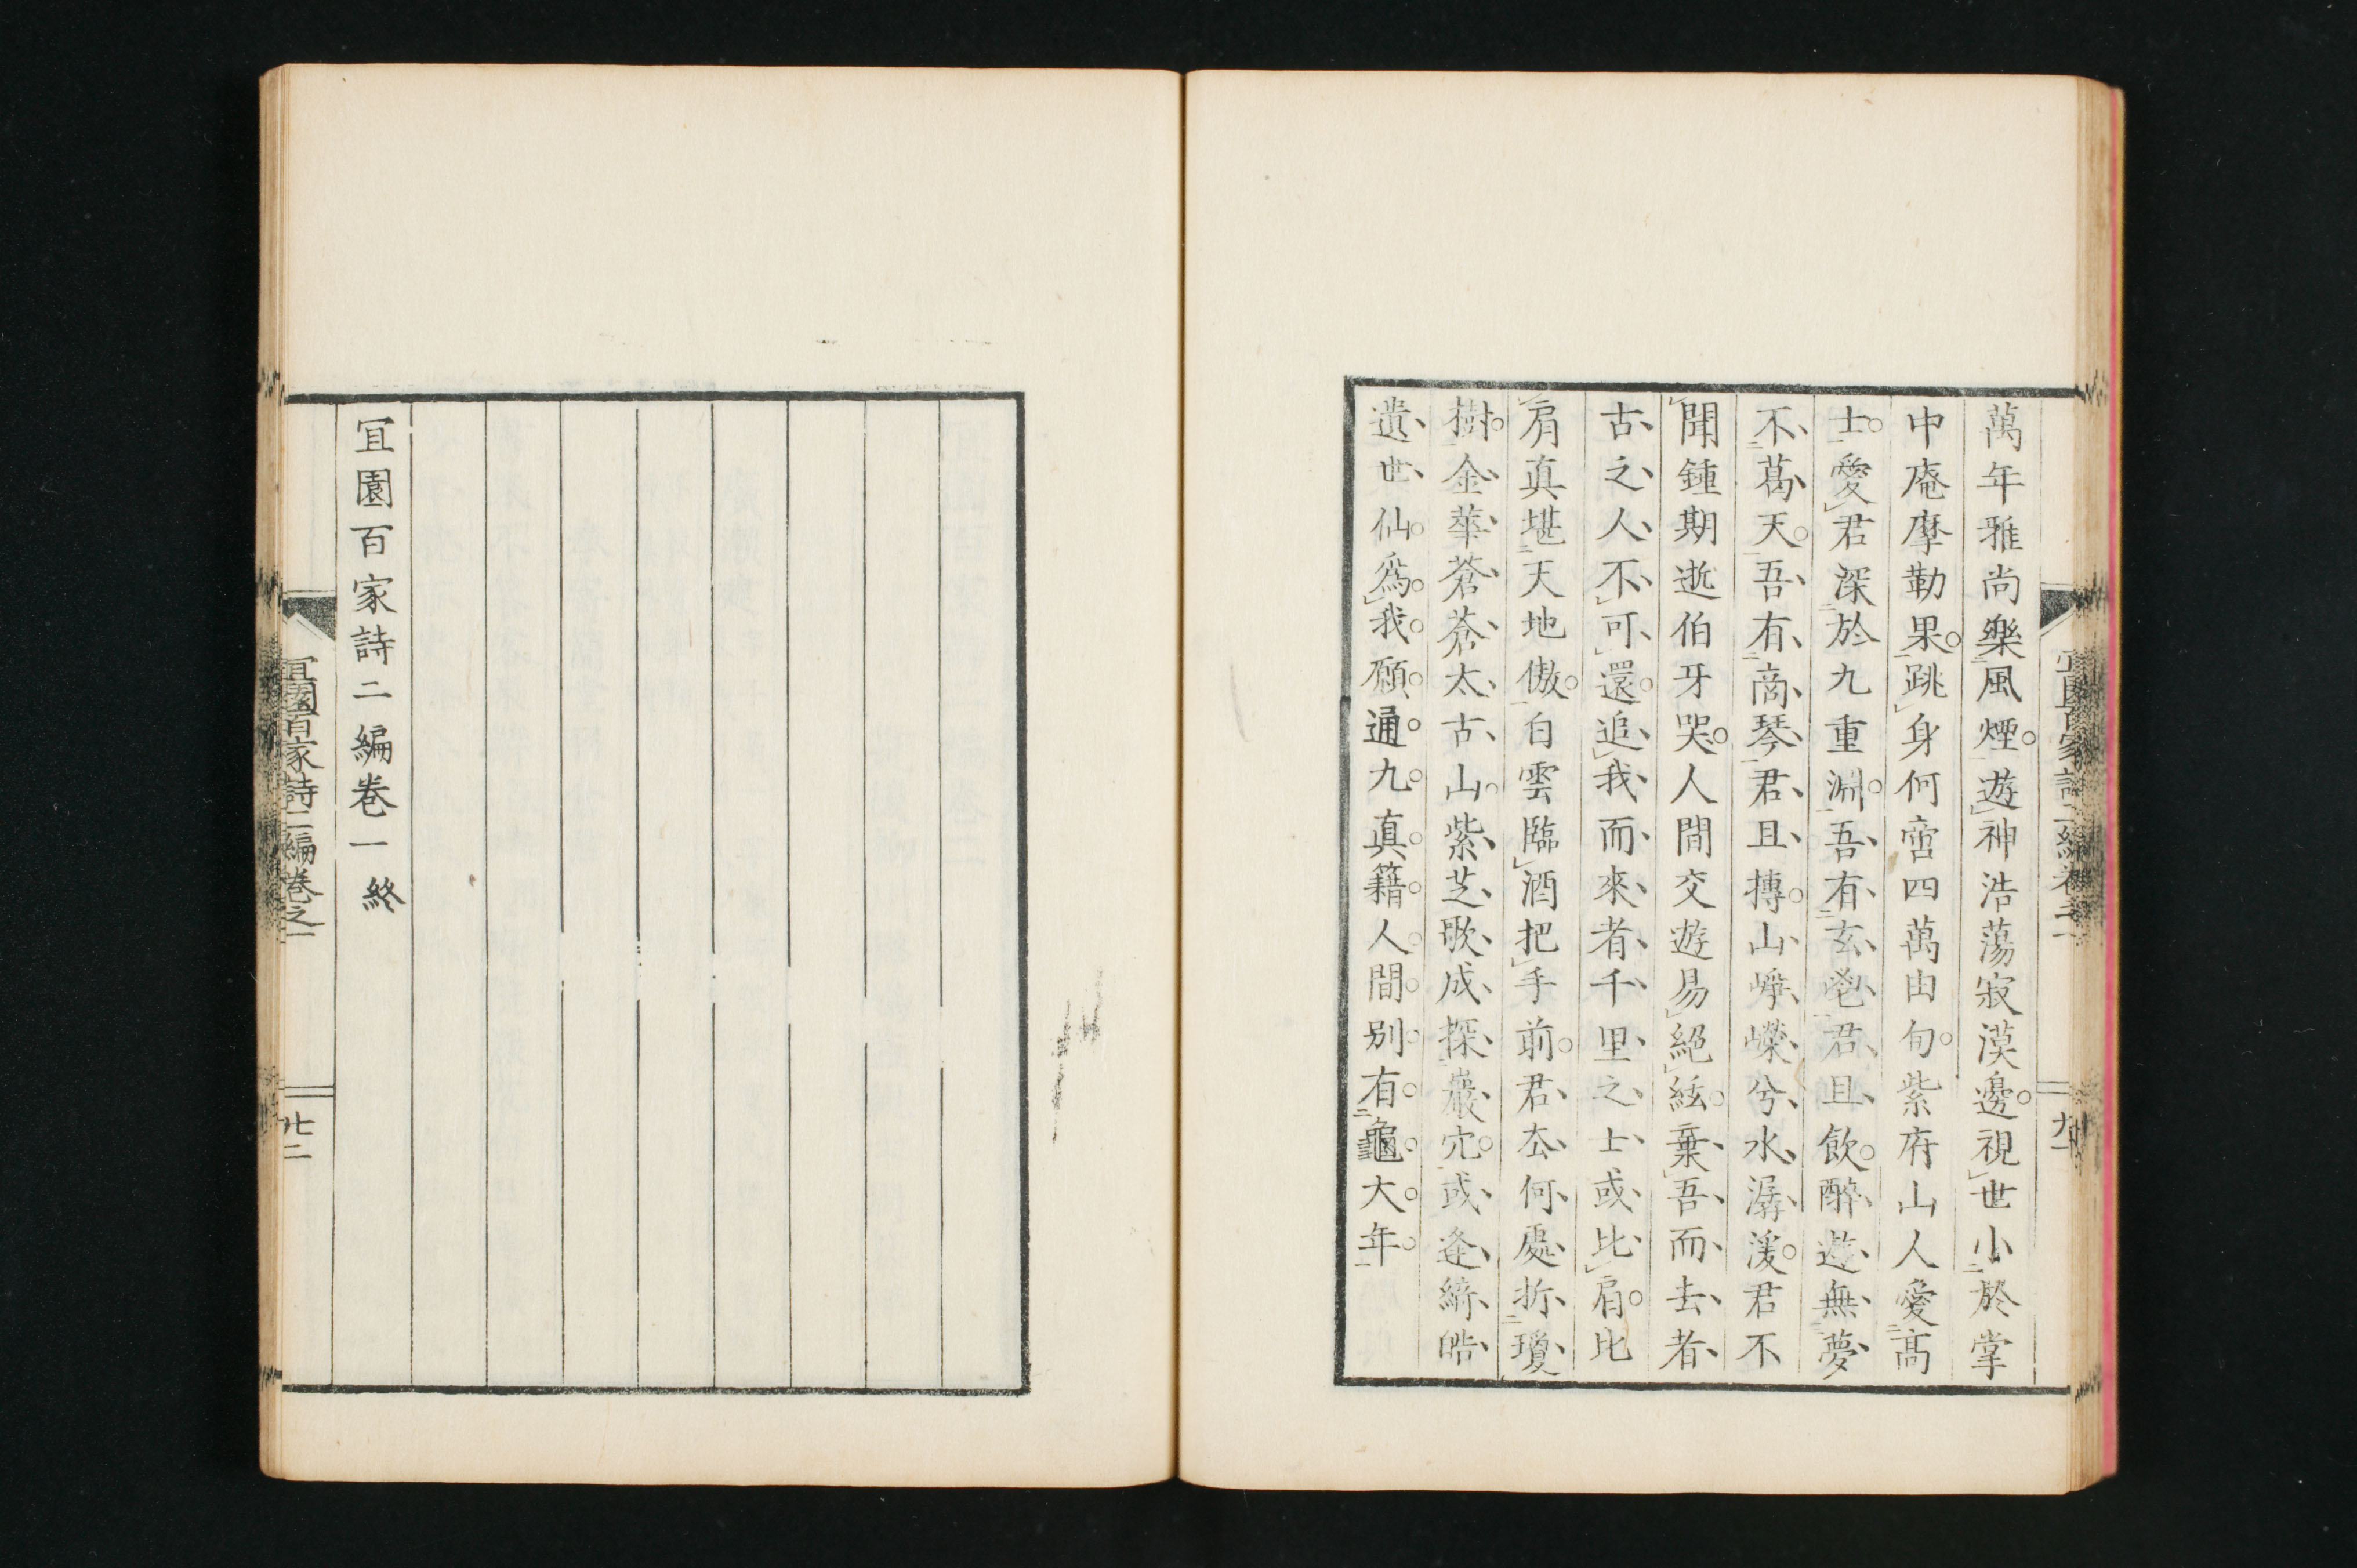 萬年雅尚樂風煙遊神浩蕩寂漠邊視世小於掌
中庵摩勒果跳身何啻四萬由旬紫府山人愛高
士愛君深於九重淵吾有玄鬯君且飲醉遊無夢
不葛天吾有商琴君且摶山崢嶸兮水潺湲君不
聞鍾期逝伯牙哭人間交遊易絕絃棄吾而去者
古之人不可還追我而來者千里之士或比肩比
肩真堪天地傲白雲臨酒把手前君去何處折瓊
樹金華蒼蒼太古山紫芝歌成探巖穴或逢綺皓
遺世仙為我願通九真籍人間別有龜大年
宜園百家詩二編卷之一
宜園百家詩二編卷一終
宜園百家詩二編卷之一
廿二